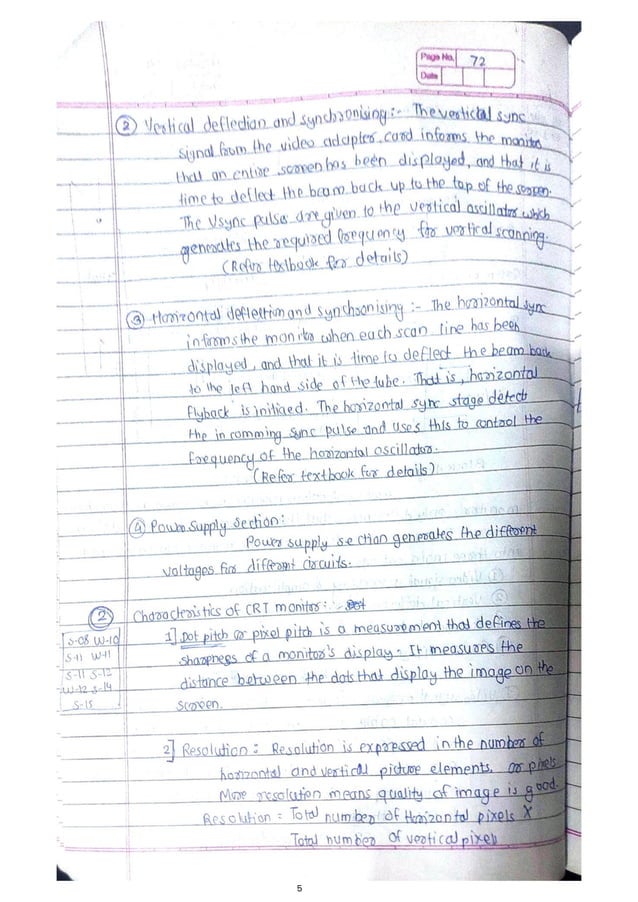 Page No. 72
Date
② Vertical deflection and synchronising :- The vertical sync
signal from the video adapter card informs the monitor
that an entire screen has been displayed, and that it is
time to deflect the beam back up to the top of the screen.
The Vsync pulses are given to the vertical oscillator which
generates the required frequency for vertical scanning.
(Refer textbook for details)
③ Horizontal deflection and synchronising :- The horizontal sync
informs the monitor when each scan line has been
displayed, and that it is time to deflect the beam back
to the left hand side of the tube. That is, horizontal
flyback is initiaed. The horizontal sync stage detects
the in comming sync pulse and uses this to control the
frequency of the horizontal oscillator.
(Refer textbook for details)
④ Power Supply Section:
Power supply section generates the different
voltages for different circuits.
② Characteristics of CRT monitor:
S-08 W-10
S-11 W-11
S-11 S-12
W-12 S-14
S-15
1] Dot pitch or pixel pitch is a measurement that defines the
sharpness of a monitor's display. It measures the
distance between the dots that display the image on the
screen.
2] Resolution : Resolution is expressed in the number of
horizontal and vertical picture elements, or pixels
More resolution means quality of image is good.
Resolution = Total number of Horizontal pixels X
Total number of vertical pixels
5